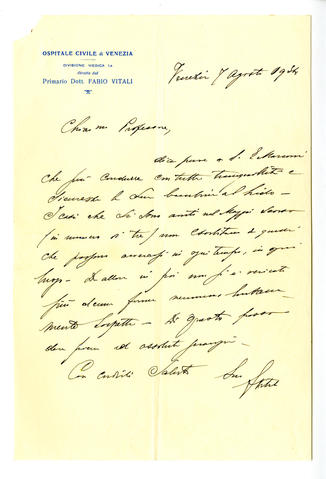 OSPITALE CIVILE di VENEZIA
DIVISIONE MEDICA 1a
diretta dal
Primario Dott. FABIO VITALI
Venezia 7 Agosto 1934
Chiar.mo Professore,
dica pure a S. E. Marconi
che può condurre con tutta tranquillità e
sicurezza la sua bambina al Lido
I casi che si sono avuti nel Maggio scorso
(in numero di tre) non
che possono in ogni tempo, in ogni
luogo. Da allora in poi non si è verificata
più alcuna forma nemmeno
mente sospetta. Di questo posso
dare piena ed assoluta
Con cordiali saluti
Suo